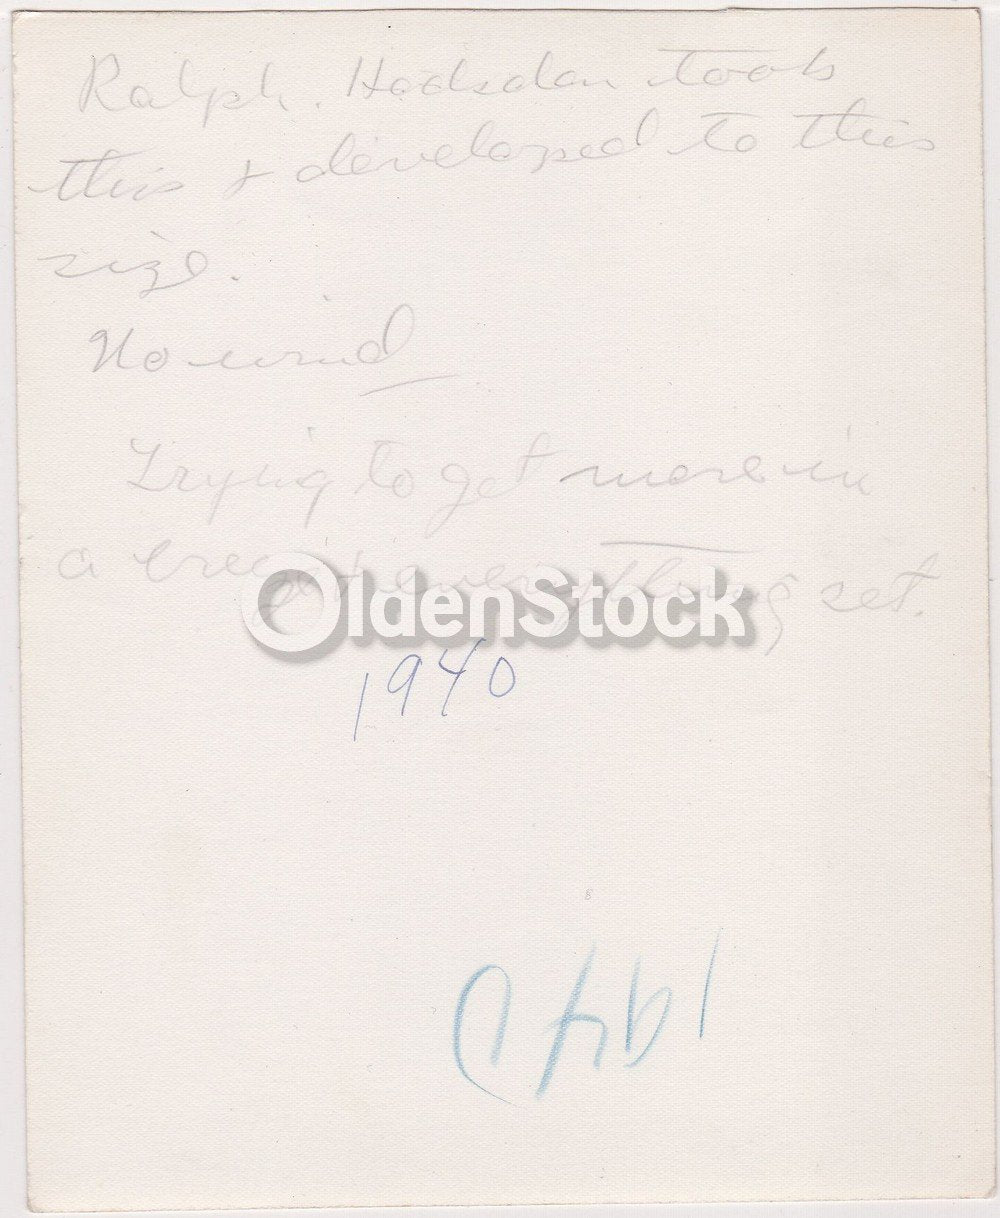 Ralph. Hodsdon took
this & developed to this
size.
No wind
Trying to get more in
a everything set.
OldenStock
1940
1940